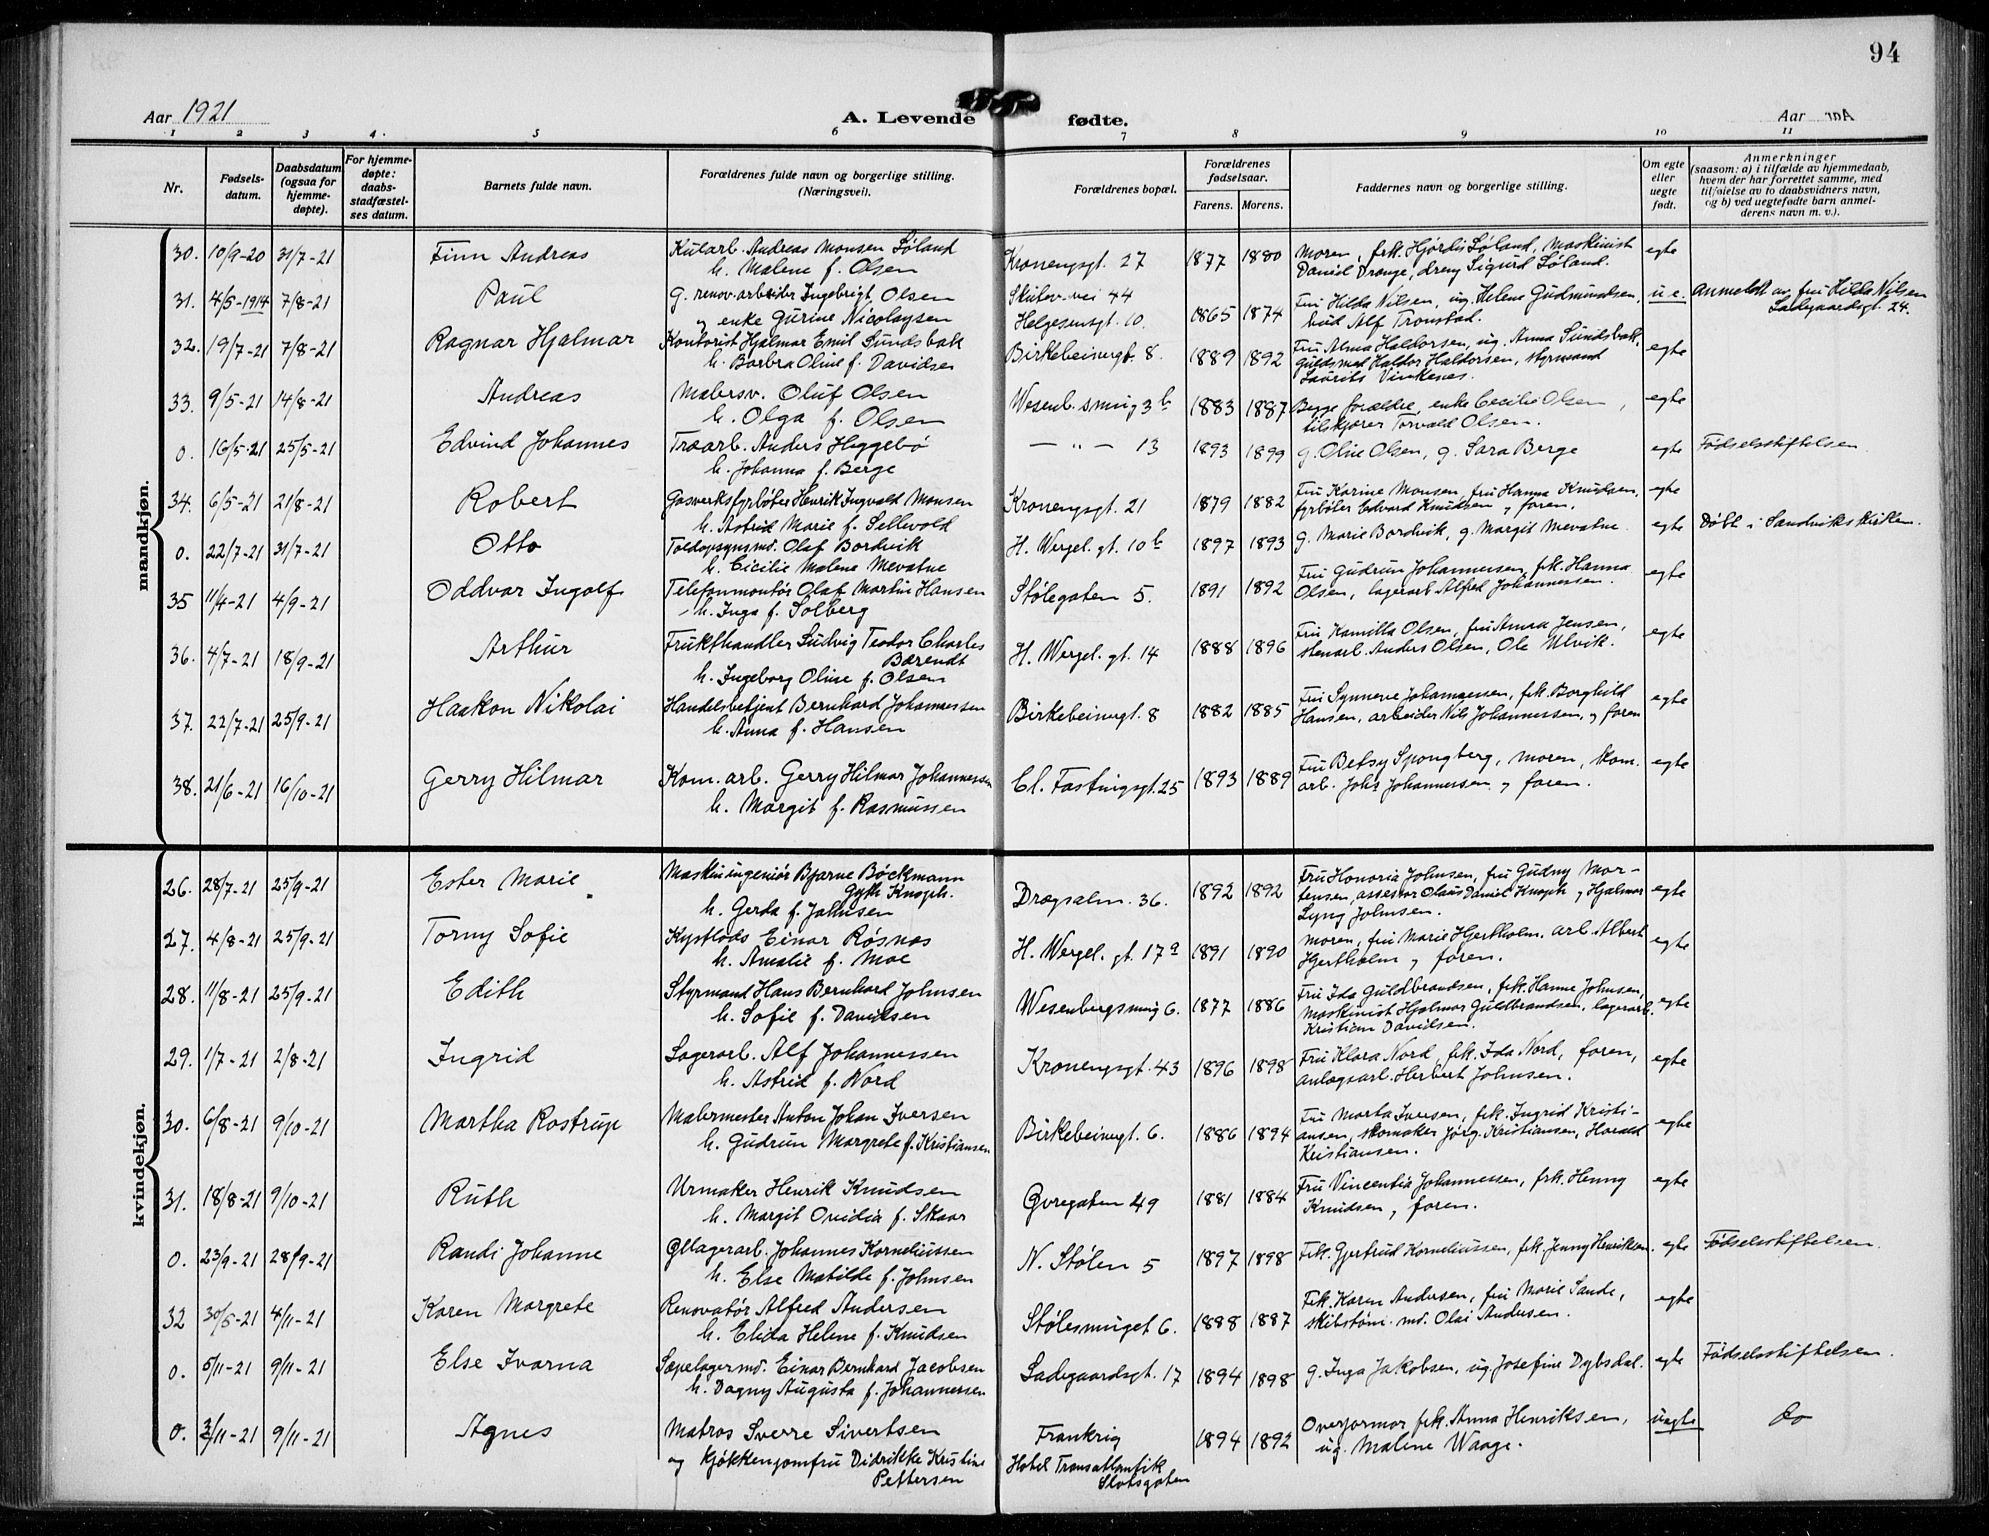 94
Aar 1921
A. Levende fødte.
Aar
1 2 3 4 5 6 7 8 9 10 11
Nr.
Fødsels-
datum.
Daabsdatum
(ogsaa for
hjemme-
døpte).
For hjemme-
døpte:
daabs-
stadfæstel-
ses datum.
Barnets fulde navn.
Forældrenes fulde navn og borgerlige stilling.
(Næringsveil).
Forældrenes bopæl.
Forældrenes
fødselsaar.
Farens. Morens.
Faddernes navn og borgerlige stilling.
Om egte
eller
uegte
født.
Anmerkninger
(saasom: a) i tilfælde av hjemmedaab,
hvem der har forrettet samme, med
tilføielse av to daabsvidners navn,
og b) ved uegtefødte barn anmel-
derens navn m. v.).
mandkjøn.
30. 10/9-20 31/7-21 Finn Andreas
Kularb. Andreas Monsen Søland
h. Malene f. Olsen
Kronengsgt. 27 1877 1880
Moren, frk. Hjørdis Søland, maskinist
Daniel Drange, dreng Sigurd Søland.
egte
31. 4/5-1914 7/8-21 Paul
G. renov.arbeider Ingebrigt Olsen
og enke Gurine Nicolaysen
Skutev.vei 44
Helgesensgt. 10. 1865 1874
Fru Hilda Nilsen, ug. Helene Gudmundsen,
bud Alf Tronstad.
u.e.
Anmeldt av fru Hilda Nilsen
Ladegaardsgt. 24.
32. 19/7-21 7/8-21 Ragnar Hjalmar
Kontorist Hjalmar Emil Sundsbak
h. Borbra Oline f. Davidsen
Birkebeinergt. 8. 1889 1892
Fru Alma Haldorsen, ug. Anna Sundsbak,
guldsmed Haldor Haldorsen, styrmand
Laurits Vinkenes.
egte
33. 9/5-21 14/8-21 Andreas
Malersv. Oluf Olsen
h. Olga f. Olsen
Wesenb.smug 3b 1883 1887
Begge forældre, enke Cecilie Olsen,
tilskjærer Torvald Olsen.
egte
0. 16/5-21 25/5-21 Edvind Johannes
Træarb. Anders Heggebø
h. Johanna f. Berge
— " — 13 1893 1899
g. Oline Olsen, g. Sara Berge
egte Fødselsstiftelsen
34. 6/5-21 21/8-21 Robert
Gasverksfyrbøter Henrik Ingvald Monsen
h. Astrid Marie f. Sellevold
Kronengsgt. 21 1879 1882
Fru Karine Monsen, fru Hanna Knudsen,
fyrbøter Edvard Knudsen og faren.
egte
0. 22/7-21 31/7-21 Otto
Toldopsynsmd. Olaf Bordvik
h. Cicilie Malene Mevatne
H. Wergel. gt. 10b 1897 1893
g. Marie Bordvik, g. Margit Mevatne.
egte Døbt i Sandvikskirken.
35 11/4-21 4/9-21 Oddvar Ingolf
Telefonmontør Olaf Martin Hansen
h. Inga f. Solberg
Stølegaten 5. 1891 1892
Fru Gudrun Johannessen, frk. Hanna
Olsen, lagerarb. Alfred Johannessen.
egte
36. 4/7-21 18/9-21 Arthur
Frukthandler Ludvig Teodor Charles
Bærendt
h. Ingeborg Oline f. Olsen
H. Wergel. gt. 14 1888 1896
Fru Kamilla Olsen, fru Anna Jensen,
stenarb. Anders Olsen, Ole Ulvik.
egte
37. 22/7-21 25/9-21 Haakon Nikolai
Handelsbetjent Bernhard Johannessen
h. Anna f. Hansen
Birkebeinergt. 8 1882 1885
Fru Synneve Johannessen, frk. Borghild
Hansen, arbeider Nils Johannessen, og faren
egte
38. 21/6-21 16/10-21 Gerry Hilmar
Kom. arb. Gerry Hilmar Johannessen
h. Margit f. Rasmussen
Cl. Fastingsgt. 25 1893 1889
Fru Betsy Spongberg, moren, kom.
arb. Johs Johannessen og faren.
egte
kvindekjøn.
26. 28/7-21 25/9-21 Ester Marie
Maskiningeniør Bjarne Bøckmann
Gyth Knoph.
h. Gerda f. Johnsen
Drægsalm. 36. 1892 1892
Fru Honoria Johnsen, fru Gudny Mor-
tensen, assessor Olaus Daniel Knoph og Hjalmar
Lyng Johnsen.
egte
27. 4/8-21 25/9-21 Torny Sofie
Kystlods Einar Røsnas
h. Amalie f. Moe
H. Wergel. gt. 17a 1891 1890
Moren, fru Marie Hjertholm, arb. Albert
Hjertholm og faren.
egte
28. 11/8-21 25/9-21 Edith
Styrmand Hans Bernhard Johnsen
h. Sofie f. Davidsen
Wesenbergsmug 6. 1877 1886
Fru Ida Guldbrandsen, frk. Hanne Johnsen,
maskinist Hjalmar Guldbrandsen, lagerarb.
Kristian Davidsen.
egte
29. 1/7-21 2/8-21 Ingrid
Lagerarb. Alf Johannessen
h. Astrid f. Nord
Kronengsgt. 43 1896 1898
Fru Klara Nord, frk. Ida Nord, faren,
anlægsarb. Herbert Johnsen.
egte
30. 6/8-21 9/10-21 Martha Rostrup
Malermester Anton Johan Iversen
h. Gudrun Margrete f. Kristiansen
Birkebeinergt. 6. 1886 1894
Fru Marta Iversen, frk. Ingrid Kristi-
ansen, skomaker Jørg. Kristiansen, Harald
Kristiansen.
egte
31. 18/8-21 9/10-21 Ruth
Urmaker Henrik Knudsen
h. Margit Ovidia f. Skaar
Øvregaten 49 1881 1884
Fru Vincentia Johannessen, frk. Henny
Knudsen, faren.
egte
0. 23/9-21 28/9-21 Randi Johanne
Øllagerarb. Johannes Korneliussen
h. Else Matilde f. Johnsen
N. Stølen 5 1897 1898
Frk. Gjertrud Korneliussen, frk. Jenny Henriksen.
egte Fødselsstiftelsen.
32 30/5-21 4/11-21 Karen Margrete
Renovatør Alfred Andersen
h. Elida Helene f. Knudsen
Stølesmuget 6. 1888 1887
Frk. Karen Andersen, fru Marie Sande,
skibstøm. md. Olai Andersen.
egte
0. 5/11-21 9/11-21 Else Ivarna
Sæpelagermd. Einar Bernhard Jacobsen
h. Dagny Augusta f. Johannessen
Ladegaardsgt. 17 1894 1898
g. Inga Jakobsen, ug. Josefine Dybsdal.
egte Fødselsstiftelsen.
0. 3/11-21 9/11-21 Agnes
Matros Sverre Sivertsen
og kjøkkenjomfru Didrikke Kristine
Pettersen
Frankrig
Hotel Transatlantik
Slotsgaten
1894 1892
Overjormor frk. Anna Henriksen,
ug. Malene Waage.
uegte do